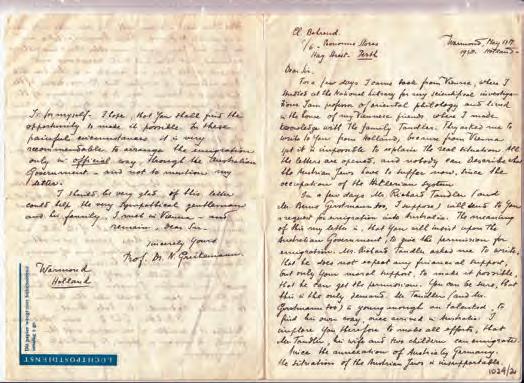 Cl. Behrend.
c/o - Economic Stores
Hay Street. Perth
Warmond, May 17th
1938. Holland -
Dear Sir.
For a few days I came back from Vienna, where I
studied at the National Library for my scientific investiga-
tions. I am professor of oriental philology and lived
in the house of my Viennese friends where I made
knowledge with the family Tandler. They asked me to
write to You from Holland, because from Vienna
yet it is impossible to explain the real situation. All
the letters are opened, and nobody can describe what
the Austrian Jews have to suffer now, since the
occupation of the Hitlerian System.
In a few days Mr Richard Tandler (and
Mr. Benno Gerstmann too, I suppose) will send to You
a request for emigration into Australia. The meaning
of this my letter is, that You will insist upon the
Australian Government, to give the permission for
emigration. Mr. Richard Tandler asked me to write,
that he does not expect any financial support,
but only Your moral support, to make it possible,
that he can get the permission. You can be sure, that
this is the only demand. Mr Tandler (and Mr.
Gerstmann too) is young enough and talented, to
find his own way, once arrived in Australia. I
implore You therefore to make all efforts, that
Mr Tandler, his wife and two children can emigrate.
Since the annexation of Austria by Germany
the situation of the Austrian Jews is insupportable.
1024/20
As for myself. I hope, that You shall find the
opportunity to make it possible. In these
painful circumstances it is very
recommendable to arrange the emigration
only in official way, through the Australian
Government - and not to mention my
letter.
I should be very glad, if this letter
could help the very sympathical gentleman
and his family, I met in Vienna - and
remain, dear Sir.
sincerely Yours
Prof. Dr. N.
Warmond
Holland
LUCHTPOSTDIENST